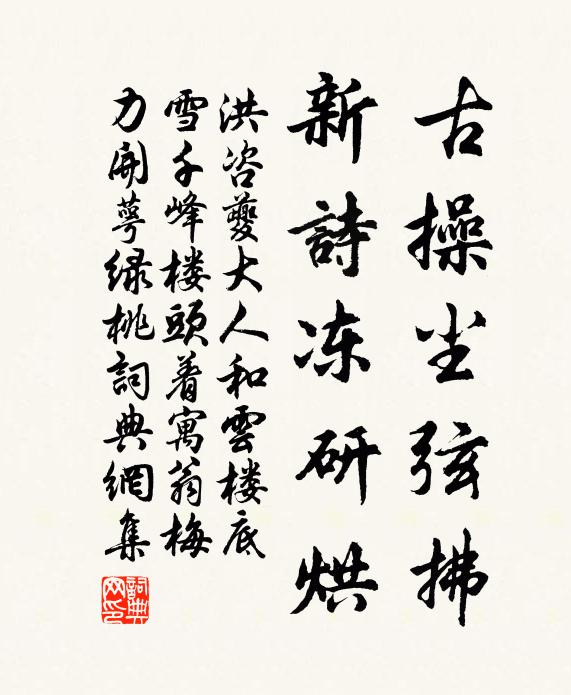 古操尘弦拂
新詩冻研烘
洪咨夔大人和雲楼底
雪千峰楼頭着寓翁梅
力開萼緑桃詞典網集
詞典网印